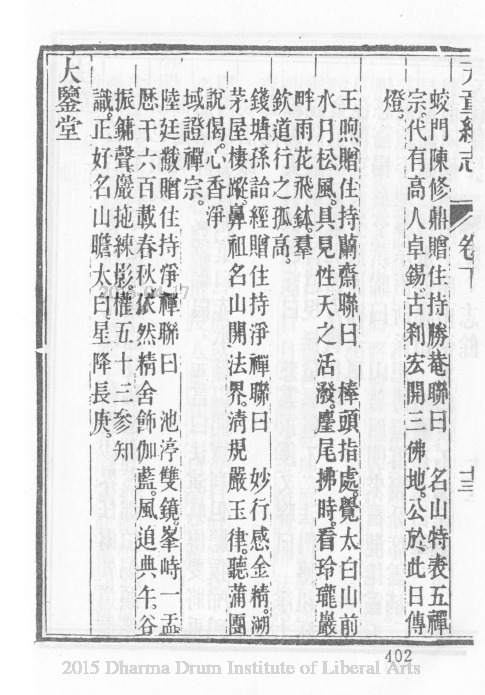 天童續志
卷下
十三
蛟門陳修鼎贈住持勝菴聯曰　名山特表五禪
宗代有高人卓錫古刹宏開三佛地公於此日傳
燈
王煦贈住持蘭齋聯曰　棒頭指處覺太白山前
水月松風具見性天之活潑麈尾拂時看玲瓏巖
畔雨花飛鉢羣
欽道行之孤高
錢塘孫詒經贈住持淨禪聯曰　妙行感金精湖
茅屋棲蹤鼻祖名山開法界清規嚴玉律聽蒲團
說偈心香淨
域證禪宗
陸廷黻贈住持淨禪聯曰　池渟雙鏡峯峙一盂
歷千六百載春秋依然精舍飾伽藍風追典午谷
振鏞聲巖拖練影懽五十三參知
識正好名山瞻太白星降長庚
大鑒堂
402
2015 Dharma Drum Institute of Liberal Arts